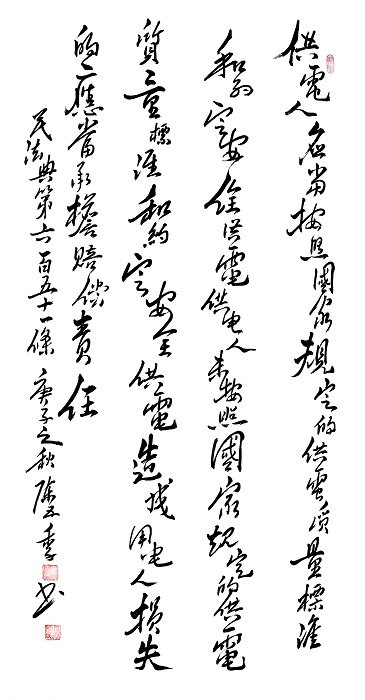 供電人應當按照國家規定的供電質量標準
和約定安全供電供电人未按照國家規定的供電
質量標準和約定安全供電造成用电人損失
的應當承擔賠償責任
民法典第六百五十一條 庚子之秋 季 书